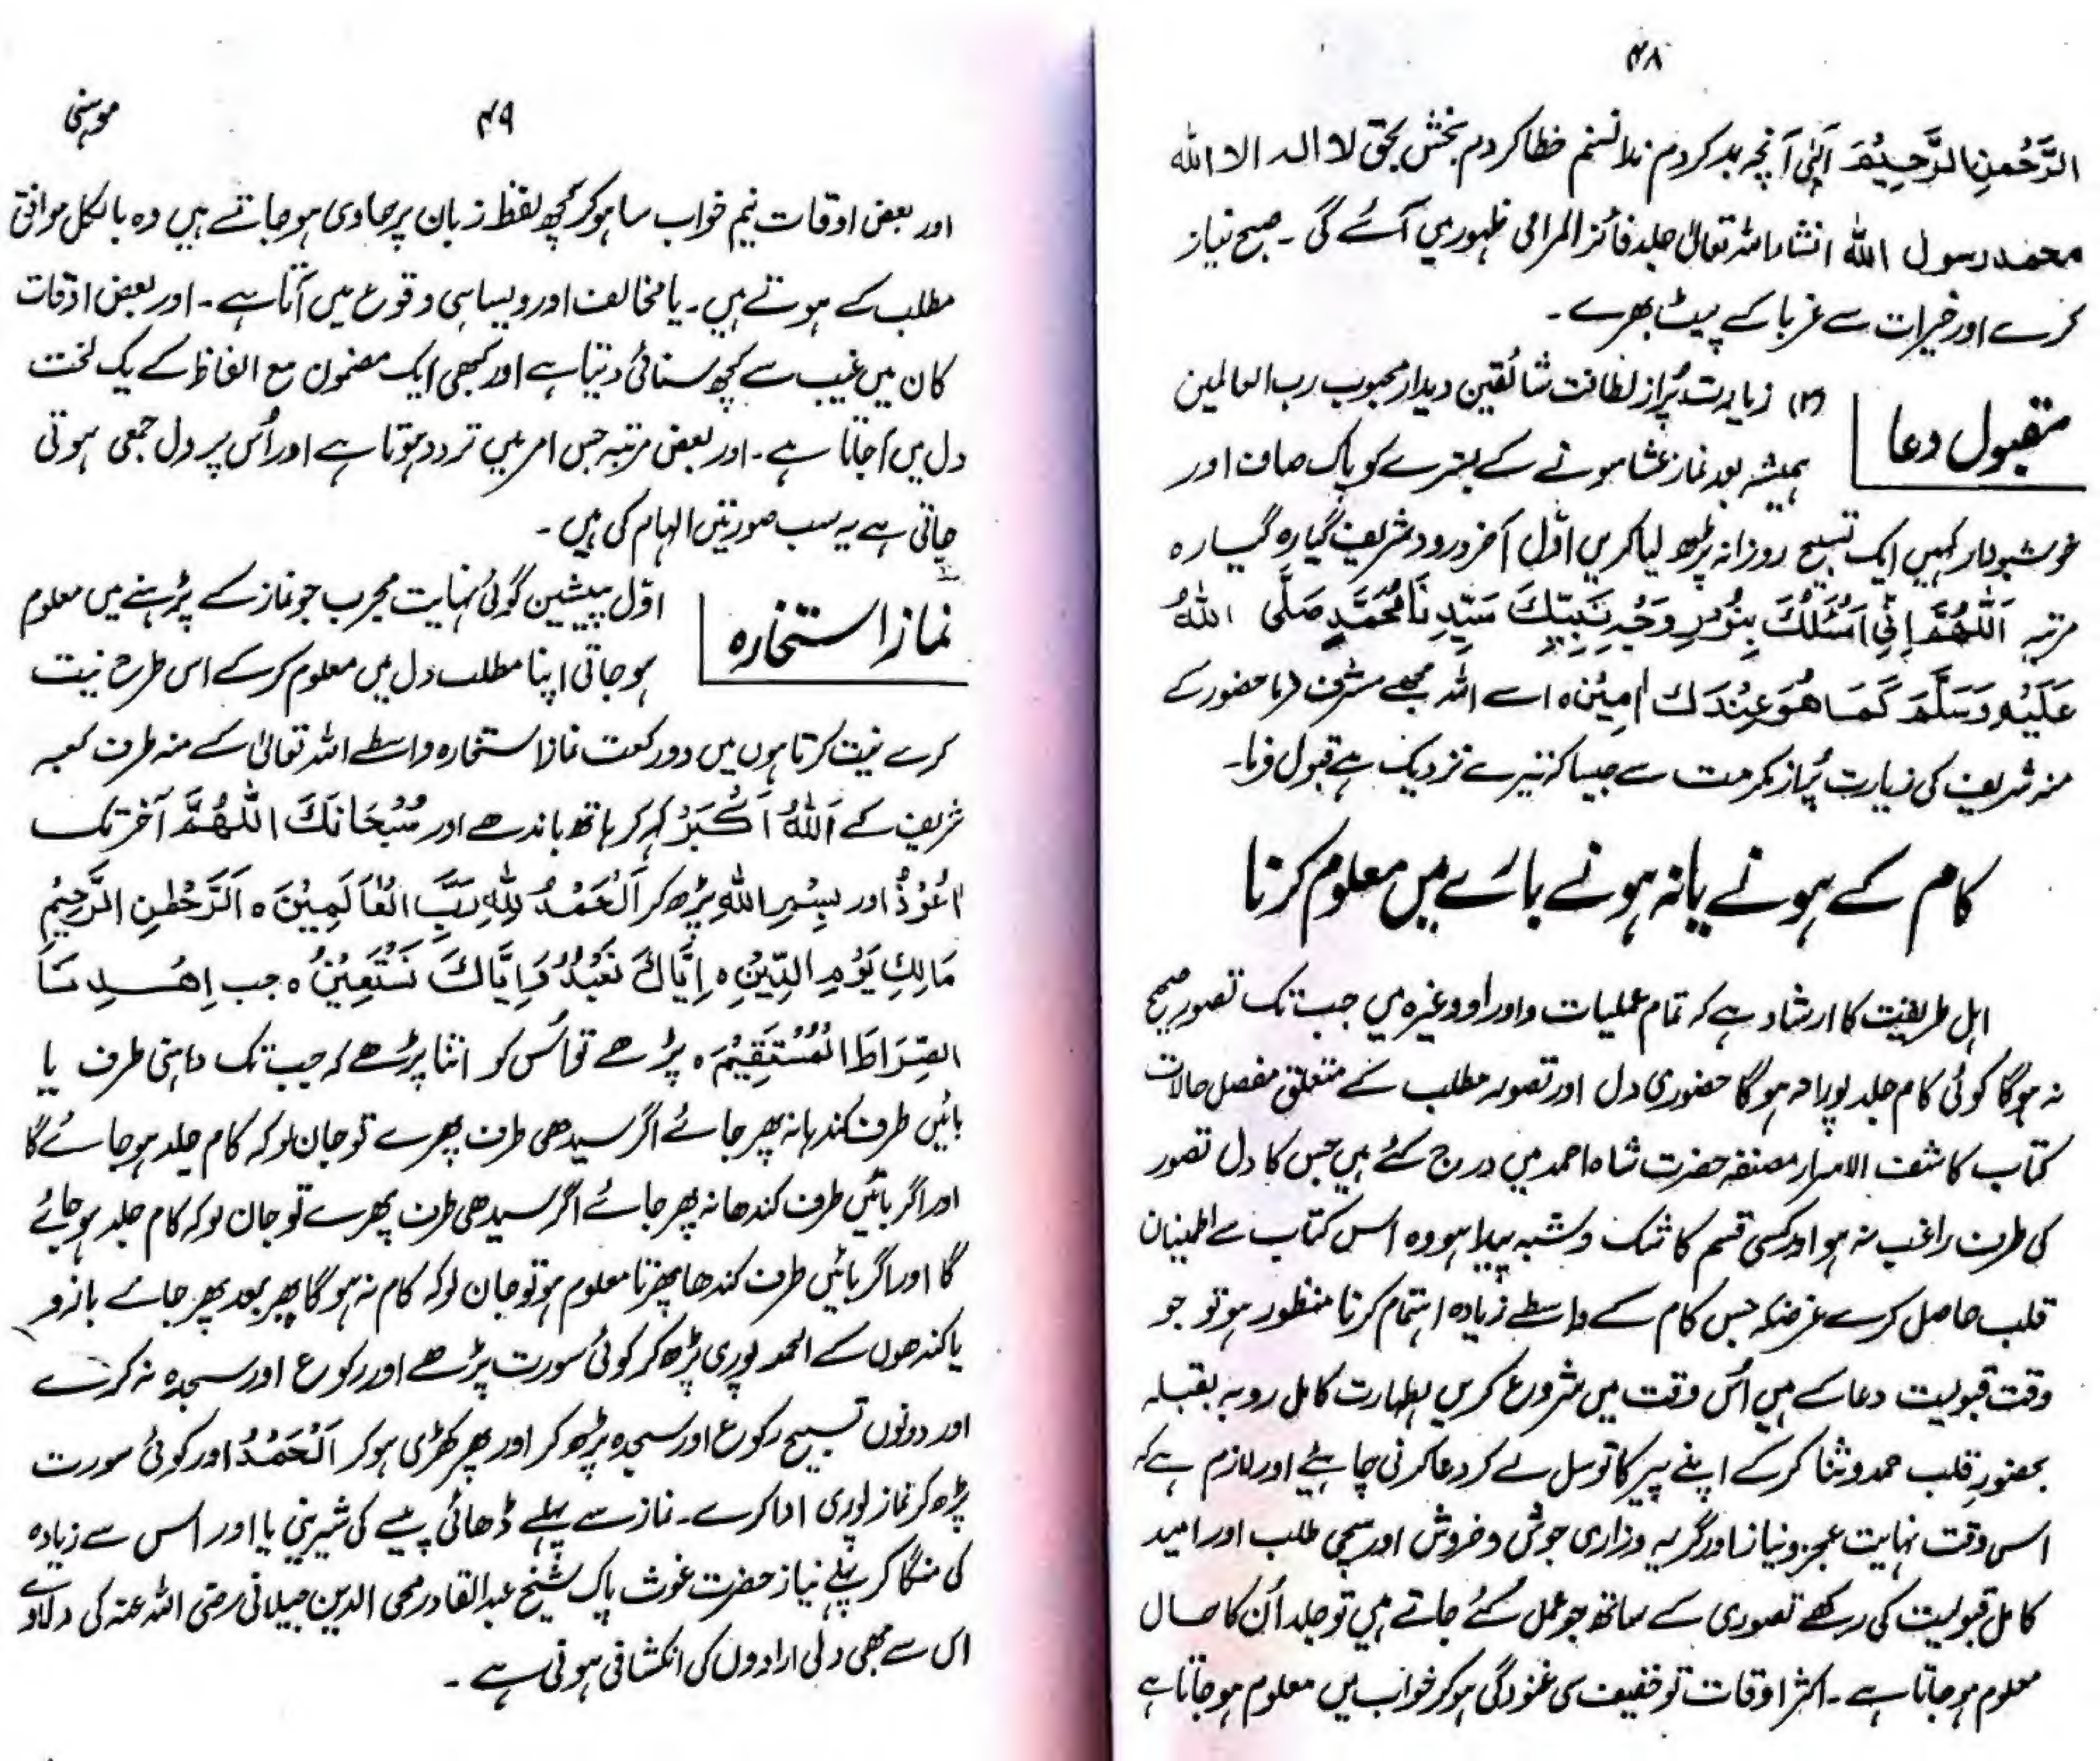 ۴۸
الرَّحْمٰنِ الرَّحِيْمَ الٰہی آنچہ بد کردم ندانستم خطا کردم بخش بحق لا الہ الا اللہ
محمد رسول اللہ انشاء اللہ تعالیٰ جلد فائز المرامی ظہور میں آئے گی ۔ صبح نیاز
کرے اور خیرات سے غربا کے پیٹ بھرے ۔
مقبول دعا
(۲) زیارت پُراز لطافت شائقین دیدار محبوب رب العالمین
ہمیشہ بعد نماز عشا سونے کے بسترے کو پاک صاف اور
خوشبودار رکھیں ایک تسبیح روزانہ پڑھ لیا کریں اوّل آخر درود شریف گیارہ گیارہ
مرتبہ اَللّٰهُمَّ اِنِّي اَسْئَلُكَ بِنُوْرِ وَجْهِ نَبِيِّكَ سَيِّدِ نَا مُحَمَّدٍ صَلَّى اللهُ
عَلَيْهِ وَسَلَّمَ كَمَا هُوَ عِنْدَكَ اٰمِيْن ہ اے اللہ مجھے مشرف فرما حضور کے
منہ شریف کی زیارت پُراز مکرمت سے جیسا کہ تیرے نزدیک ہے قبول فرما۔
کام کے ہونے یا نہ ہونے بارے میں معلوم کرنا
اہل طریقت کا ارشاد ہے کہ تمام عملیات و اوراد وغیرہ میں جب تک تصور صحیح
نہ ہوگا کوئی کام جلد پورا نہ ہوگا حضوری دل اور تصور مطلب کے متعلق مفصل حالات
کتاب کاشف الاسرار مصنفہ حضرت شاہ احمد میں درج کئے ہیں جس کا دل تصور
کی طرف راغب نہ ہو اور کسی قسم کا شک و شبہ پیدا ہو وہ اس کتاب سے اطمینان
قلب حاصل کرے غرضیکہ جس کام کے واسطے زیادہ اہتمام کرنا منظور ہو تو جو
وقت قبولیت دعا کے ہیں اُس وقت میں شروع کریں بطہارت کامل روبہ بقبلہ
بحضورِ قلب حمد و ثنا کر کے اپنے پیر کا توسل لے کر دعا کرنی چاہیئے اور لازم ہے کہ
اس وقت نہایت عجز و نیاز اور گریہ وزاری جوش و خروش اور سچی طلب اور امید
کامل قبولیت کی رکھے تصوری کے ساتھ جو عمل کئے جاتے ہیں تو جلد اُن کا حال
معلوم ہو جاتا ہے ۔ اکثر اوقات تو خفیف سی غنودگی ہو کر خواب میں معلوم ہو جاتا ہے
۴۹
موہنی
اور بعض اوقات نیم خواب سا ہو کر کچھ لفظ زبان پر حاوی ہو جاتے ہیں وہ بالکل موافق
مطلب کے ہوتے ہیں ۔ یا مخالف اور ویسا ہی وقوع میں آتا ہے ۔ اور بعض اوقات
کان میں غیب سے کچھ سنائی دیتا ہے اور کبھی ایک مضمون مع الفاظ کے یک لخت
دل میں آجاتا ہے ۔ اور بعض مرتبہ جس امر میں تردد ہوتا ہے اور اُس پر دل جمعی ہوتی
جاتی ہے یہ سب صورتیں الہام کی ہیں ۔
نماز استخارہ
اوّل پیشین گوئی نہایت مجرب جو نماز کے پڑہنے میں معلوم
ہو جاتی اپنا مطلب دل میں معلوم کر کے اس طرح نیت
کرے نیت کرتا ہوں میں دو رکعت نماز استخارہ واسطے اللہ تعالیٰ کے منہ طرف کعبہ
شریف کے اَللّٰهُ اَكْبَرُ کہہ کر ہاتھ باندھے اور سُبْحَانَكَ اللّٰهُمَّ آخر تک
اَعُوْذُ اور بِسْمِ اللهِ پڑھ کر اَلْحَمْدُ لِلّٰهِ رَبِّ الْعَالَمِيْنَ ہ اَلرَّحْمٰنِ الرَّحِيْمِ
مَالِكِ يَوْمِ الدِّيْنِ ہ اِيَّاكَ نَعْبُدُ وَاِيَّاكَ نَسْتَعِيْنُ ہ جب اِهْدِنَا
الصِّرَاطَ الْمُسْتَقِيْمَ ہ پڑھے تو اُس کو اتنا پڑھے کہ جب تک داہنی طرف یا
بائیں طرف کندہا نہ پھر جائے اگر سیدھی طرف پھرے تو جان لو کہ کام جلد ہو جائے گا
اور اگر بائیں طرف کندھا نہ پھر جائے اگر سیدھی طرف پھرے تو جان لو کہ کام جلد ہو جائے
گا اور اگر بائیں طرف کندھا پھرنا معلوم ہو تو جان لو کہ کام نہ ہو گا پھر بعد پھر جانے بازو
یا کندھوں کے الحمد پوری پڑھ کر کوئی سورت پڑھے اور رکوع اور سجدہ نہ کرے
اور دونوں تسبیح رکوع اور سجدہ پڑھ کر اور پھر کھڑی ہو کر اَلْحَمْدُ اور کوئی سورت
پڑھ کر نماز پوری ادا کرے ۔ نماز سے پہلے ڈھائی پیسے کی شیرینی یا اور اس سے زیادہ
کی منگا کر پہلے نیاز حضرت غوث پاک شیخ عبدالقادر محی الدین جیلانی رضی اللہ عنہ کی دلادے
اس سے بھی دلی ارادوں کی انکشافی ہوتی ہے ۔